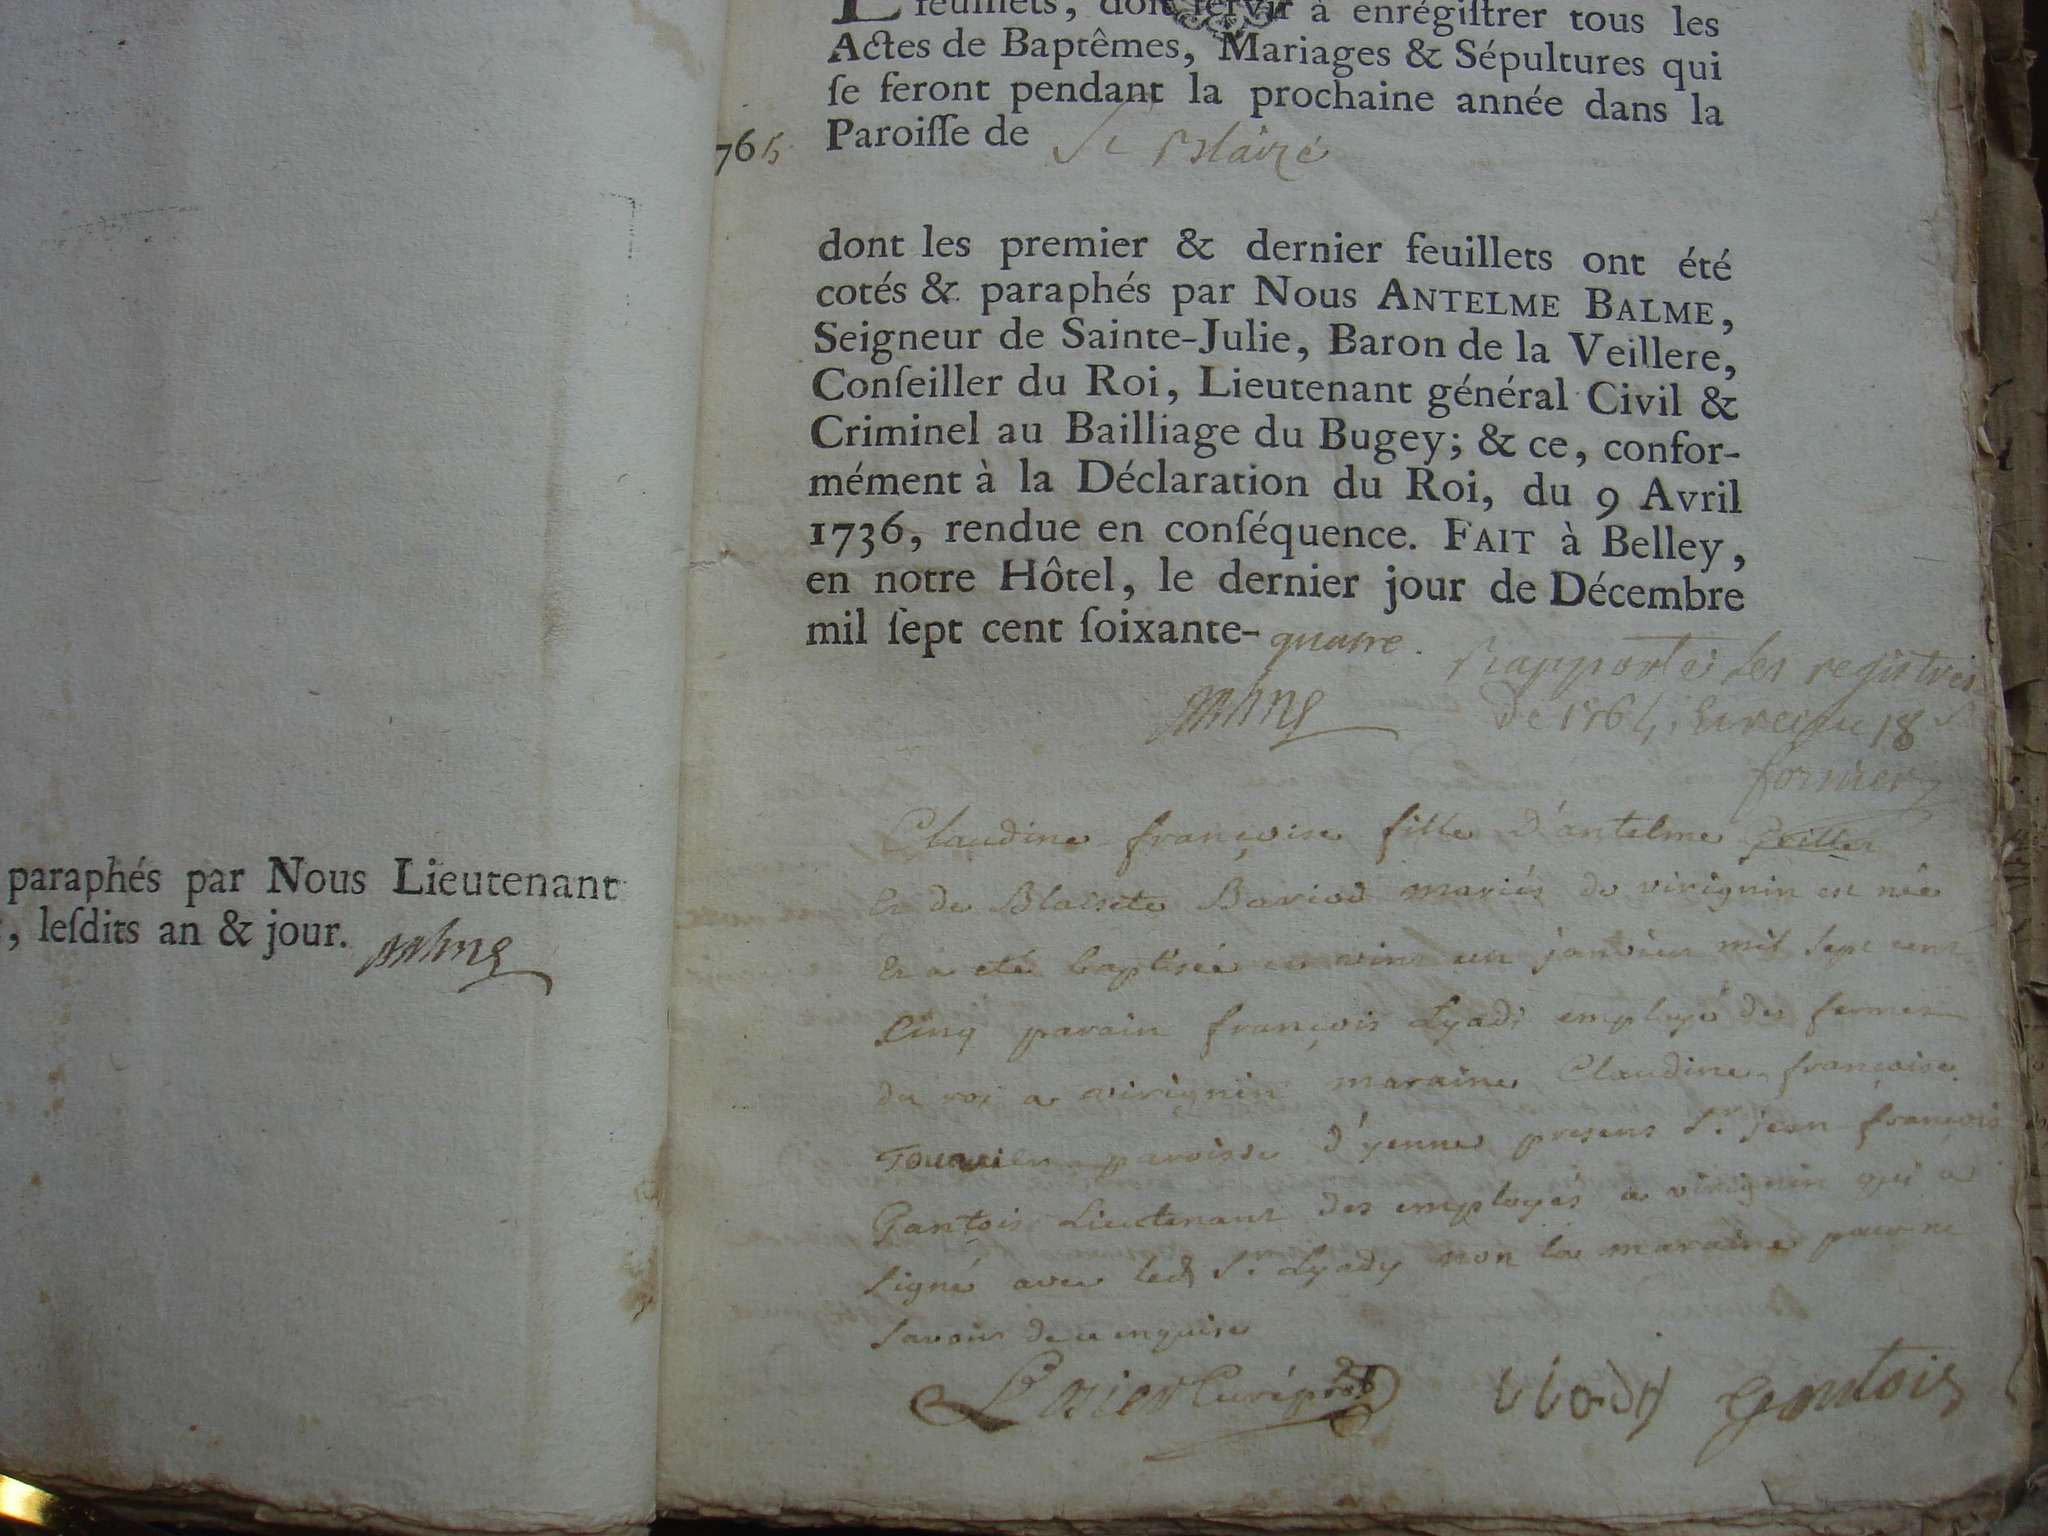 paraphés par Nous Lieutenant
, leſdits an & jour.
feuillets, doit ſervir à enrégiſtrer tous les
Actes de Baptêmes, Mariages & Sépultures qui
ſe feront pendant la prochaine année dans la
765 Paroiſſe de St Blaize
dont les premier & dernier feuillets ont été
cotés & paraphés par Nous ANTELME BALME,
Seigneur de Sainte-Julie, Baron de la Veillere,
Conſeiller du Roi, Lieutenant général Civil &
Criminel au Bailliage du Bugey; & ce, confor-
mément à la Déclaration du Roi, du 9 Avril
1736, rendue en conſéquence. FAIT à Belley,
en notre Hôtel, le dernier jour de Décembre
mil ſept cent ſoixante-quatre.
Rapporté les registres
de 1764, 18
Claudine françoise fille d'antelme
Et de Blaisete Bariod mariés de virignin est née
Et a eté baptisée ce vint un janvier mil sept cent
Cinq parain françois Lyadi employé des fermes
du roi a virignin maraine Claudine françoise
paroisse d'yenne presens Sr. jean françois
Gantois Lieutenant des employés a virignin qui a
signé avec led Sr. Lyady non la maraine pour ne
savoir de ce enquise
Curé
Gantois